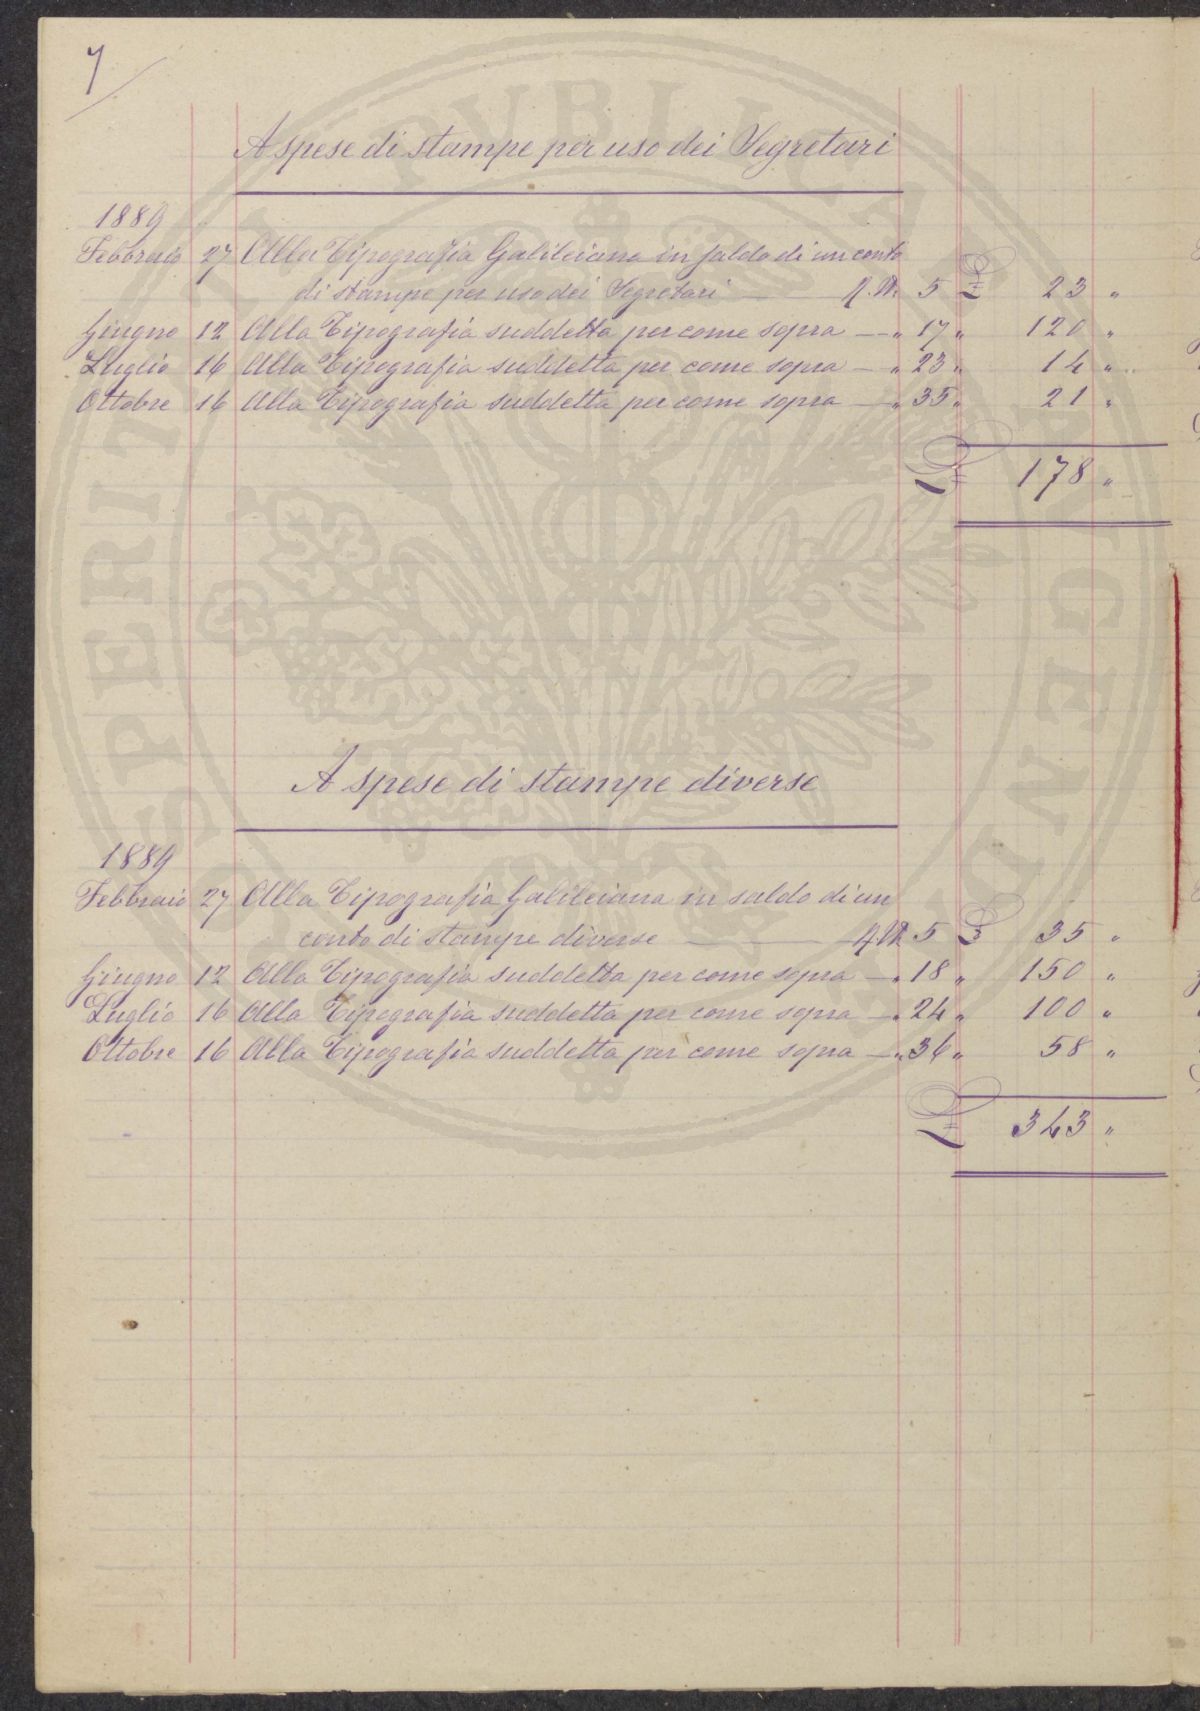 7
A spese di stampe per uso dei Segretari
1889
Febbraio 27 Alla Tipografia Galileiana in saldo di un conto
di stampe per uso dei Segretari — 5 £ 23 "
Giugno 12 Alla Tipografia suddetta per come sopra — " 17 " 120 "
Luglio 16 Alla Tipografia suddetta per come sopra — " 23 " 14 "
Ottobre 16 Alla Tipografia suddetta per come sopra — " 35 " 21 "
£ 178 "
A spese di stampe diverse
1889
Febbraio 27 Alla Tipografia Galileiana in saldo di un
conto di stampe diverse — 5 £ 35 "
Giugno 12 Alla Tipografia suddetta per come sopra — " 18 " 150 "
Luglio 16 Alla Tipografia suddetta per come sopra — " 24 " 100 "
Ottobre 16 Alla Tipografia suddetta per come sopra — " 36 " 58 "
£ 343 "